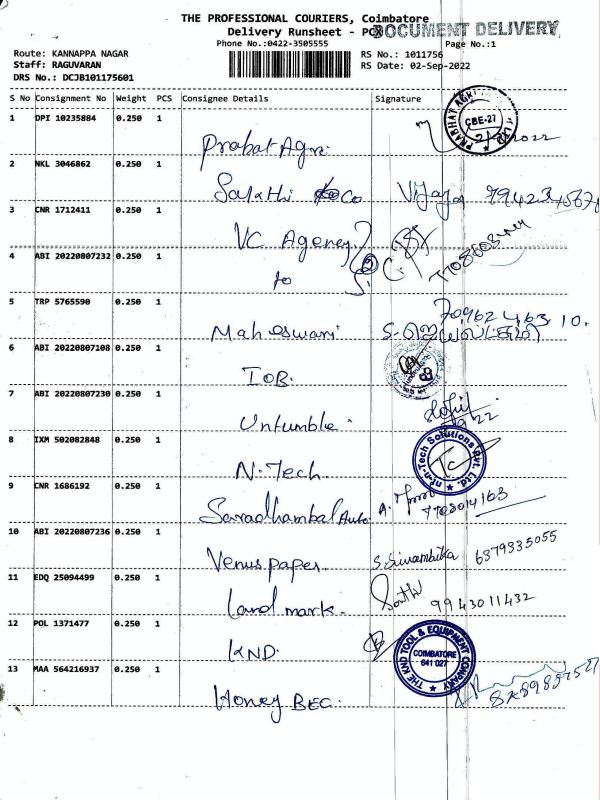 THE PROFESSIONAL COURIERS, Coimbatore
Delivery Runsheet - POD
DOCUMENT DELIVERY
Phone No.:0422-3505555
Page No.:1
Route: KANNAPPA NAGAR
RS No.: 1011756
Staff: RAGUVARAN
RS Date: 02-Sep-2022
DRS No.: DCJB101175601
S No Consignment No Weight PCS Consignee Details Signature
1 DPI 10235884 0.250 1
PRABHAT AGRI
CBE-27
Prabat Agri.
2 NKL 3046862 0.250 1
Sakthi Co Vijaya
3 CNR 1712411 0.250 1
VC Agency
4 ABI 20220807232 0.250 1
to
5 TRP 5765590 0.250 1
70962 463 10.
Maheswari S. ஜெயலட்சுமி
6 ABI 20220807108 0.250 1
IOB.
7 ABI 20220807230 0.250 1
Untumble.
8 IXM 502082848 0.250 1
nf-n-Tech Solutions Pvt. Ltd.
N-Tech
9 CNR 1686192 0.250 1
Saradhambal Auto A. 7703014163
10 ABI 20220807236 0.250 1
Venus paper S. Sivambika 6379335055
11 EDQ 25094499 0.250 1
Land mark. 9943011432
12 POL 1371477 0.250 1
KND.
THE KND TOOL & EQUIPMENT COMPANY
COIMBATORE
641 027
13 MAA 564216937 0.250 1
Honey BEC.